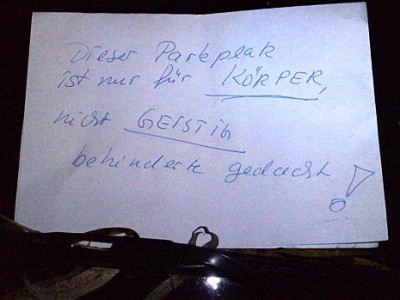 Dieser Parkplatz
ist nur für KÖRPER,
nicht GEISTIG
behinderte gedacht!